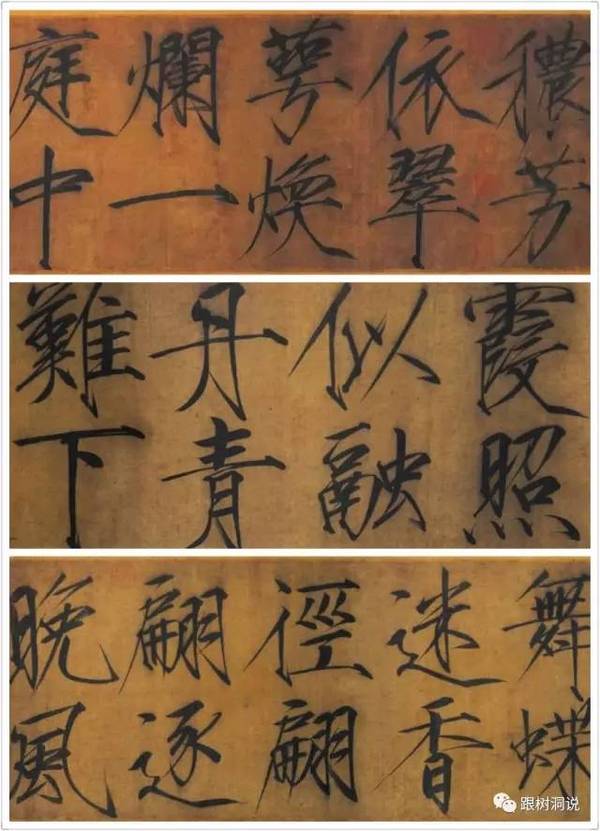 穠芳
依翠
萼煥
爛一
庭中
霞照
似融
丹青
難下
舞蝶
迷香
徑翩
翩逐
晚風
跟树洞说